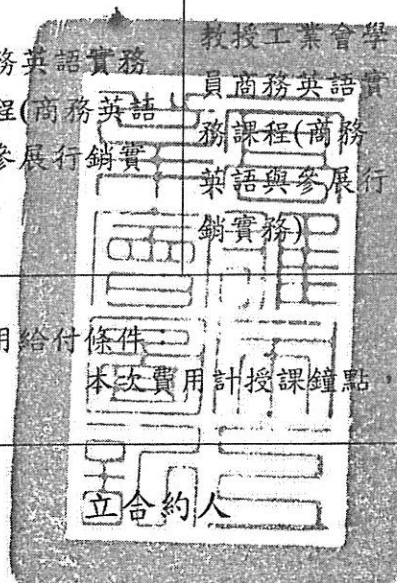 務英語實務
程(商務英語
參展行銷實
教授工業會學
員商務英語實
務課程(商務
英語與參展行
銷實務)
用給付條件：
本次費用計授課鐘點，
立合約人